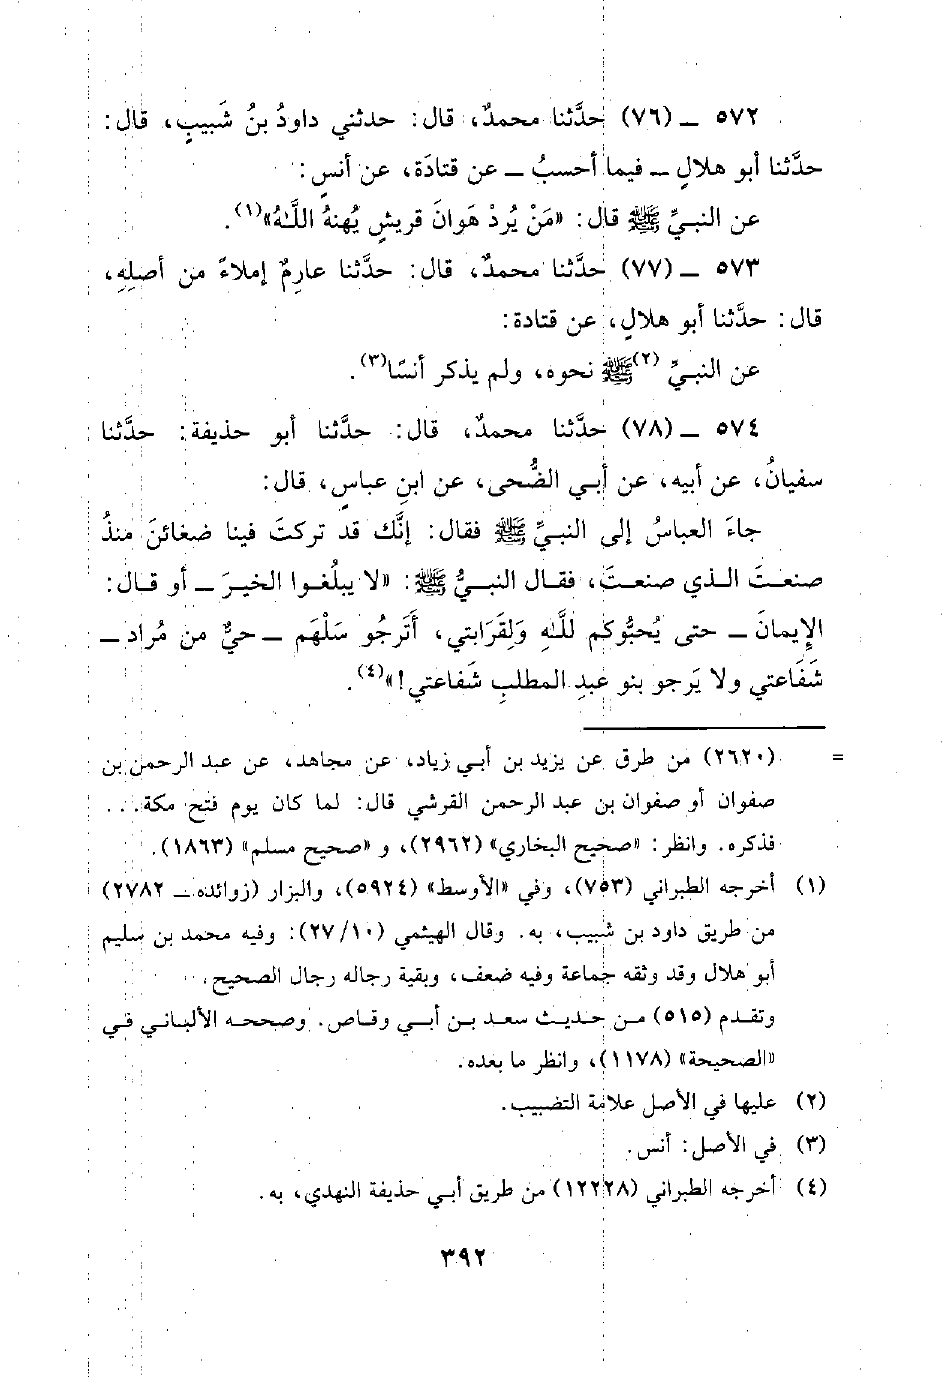 ٥٧٢ ــ (٧٦) حدَّثنا محمدٌ، قال: حدثني داودُ بنُ شَبيبٍ، قال:
حدَّثنا أبو هلالٍ ــ فيما أحسبُ ــ عن قتادَة، عن أنسٍ:
عن النبيِّ ﷺ قال: «مَنْ يُردْ هَوانَ قريشٍ يُهنهُ اللَّهُ»(١).
٥٧٣ ــ (٧٧) حدَّثنا محمدٌ، قال: حدَّثنا عارمٌ إملاءً من أصلِهِ،
قال: حدَّثنا أبو هلالٍ، عن قتادة:
عن النبيِّ (٢)ﷺ نحوه، ولم يذكر أنسًا(٣).
٥٧٤ ــ (٧٨) حدَّثنا محمدٌ، قال: حدَّثنا أبو حذيفة: حدَّثنا
سفيانُ، عن أبيه، عن أبي الضُّحى، عن ابنِ عباسٍ، قال:
جاءَ العباسُ إلى النبيِّ ﷺ فقال: إنَّك قد تركتَ فينا ضغائنَ منذُ
صنعتَ الذي صنعتَ، فقال النبيُّ ﷺ: «لا يبلُغوا الخيرَ ــ أو قال:
الإيمانَ ــ حتى يُحبُّوكم للَّهِ وَلِقَرَابتي، أَتَرجُو سَلْهَم ــ حيٌّ من مُراد ــ
شَفَاعتي ولا يَرجو بنو عبدِ المطلبِ شَفاعتي!»(٤).
= (٢٦٢٠) من طرق عن يزيد بن أبي زياد، عن مجاهد، عن عبد الرحمن بن
صفوان أو صفوان بن عبد الرحمن القرشي قال: لما كان يوم فتح مكة...
فذكره. وانظر: «صحيح البخاري» (٢٩٦٢)، و «صحيح مسلم» (١٨٦٣).
(١) أخرجه الطبراني (٧٥٣)، وفي «الأوسط» (٥٩٢٤)، والبزار (زوائده ــ ٢٧٨٢)
من طريق داود بن شبيب، به. وقال الهيثمي (٢٧/١٠): وفيه محمد بن سليم
أبو هلال وقد وثقه جماعة وفيه ضعف، وبقية رجاله رجال الصحيح.
وتقدم (٥١٥) من حديث سعد بن أبي وقاص. وصححه الألباني في
«الصحيحة» (١١٧٨)، وانظر ما بعده.
(٢) عليها في الأصل علامة التضبيب.
(٣) في الأصل: أنس.
(٤) أخرجه الطبراني (١٢٢٢٨) من طريق أبي حذيفة النهدي، به.
٣٩٢